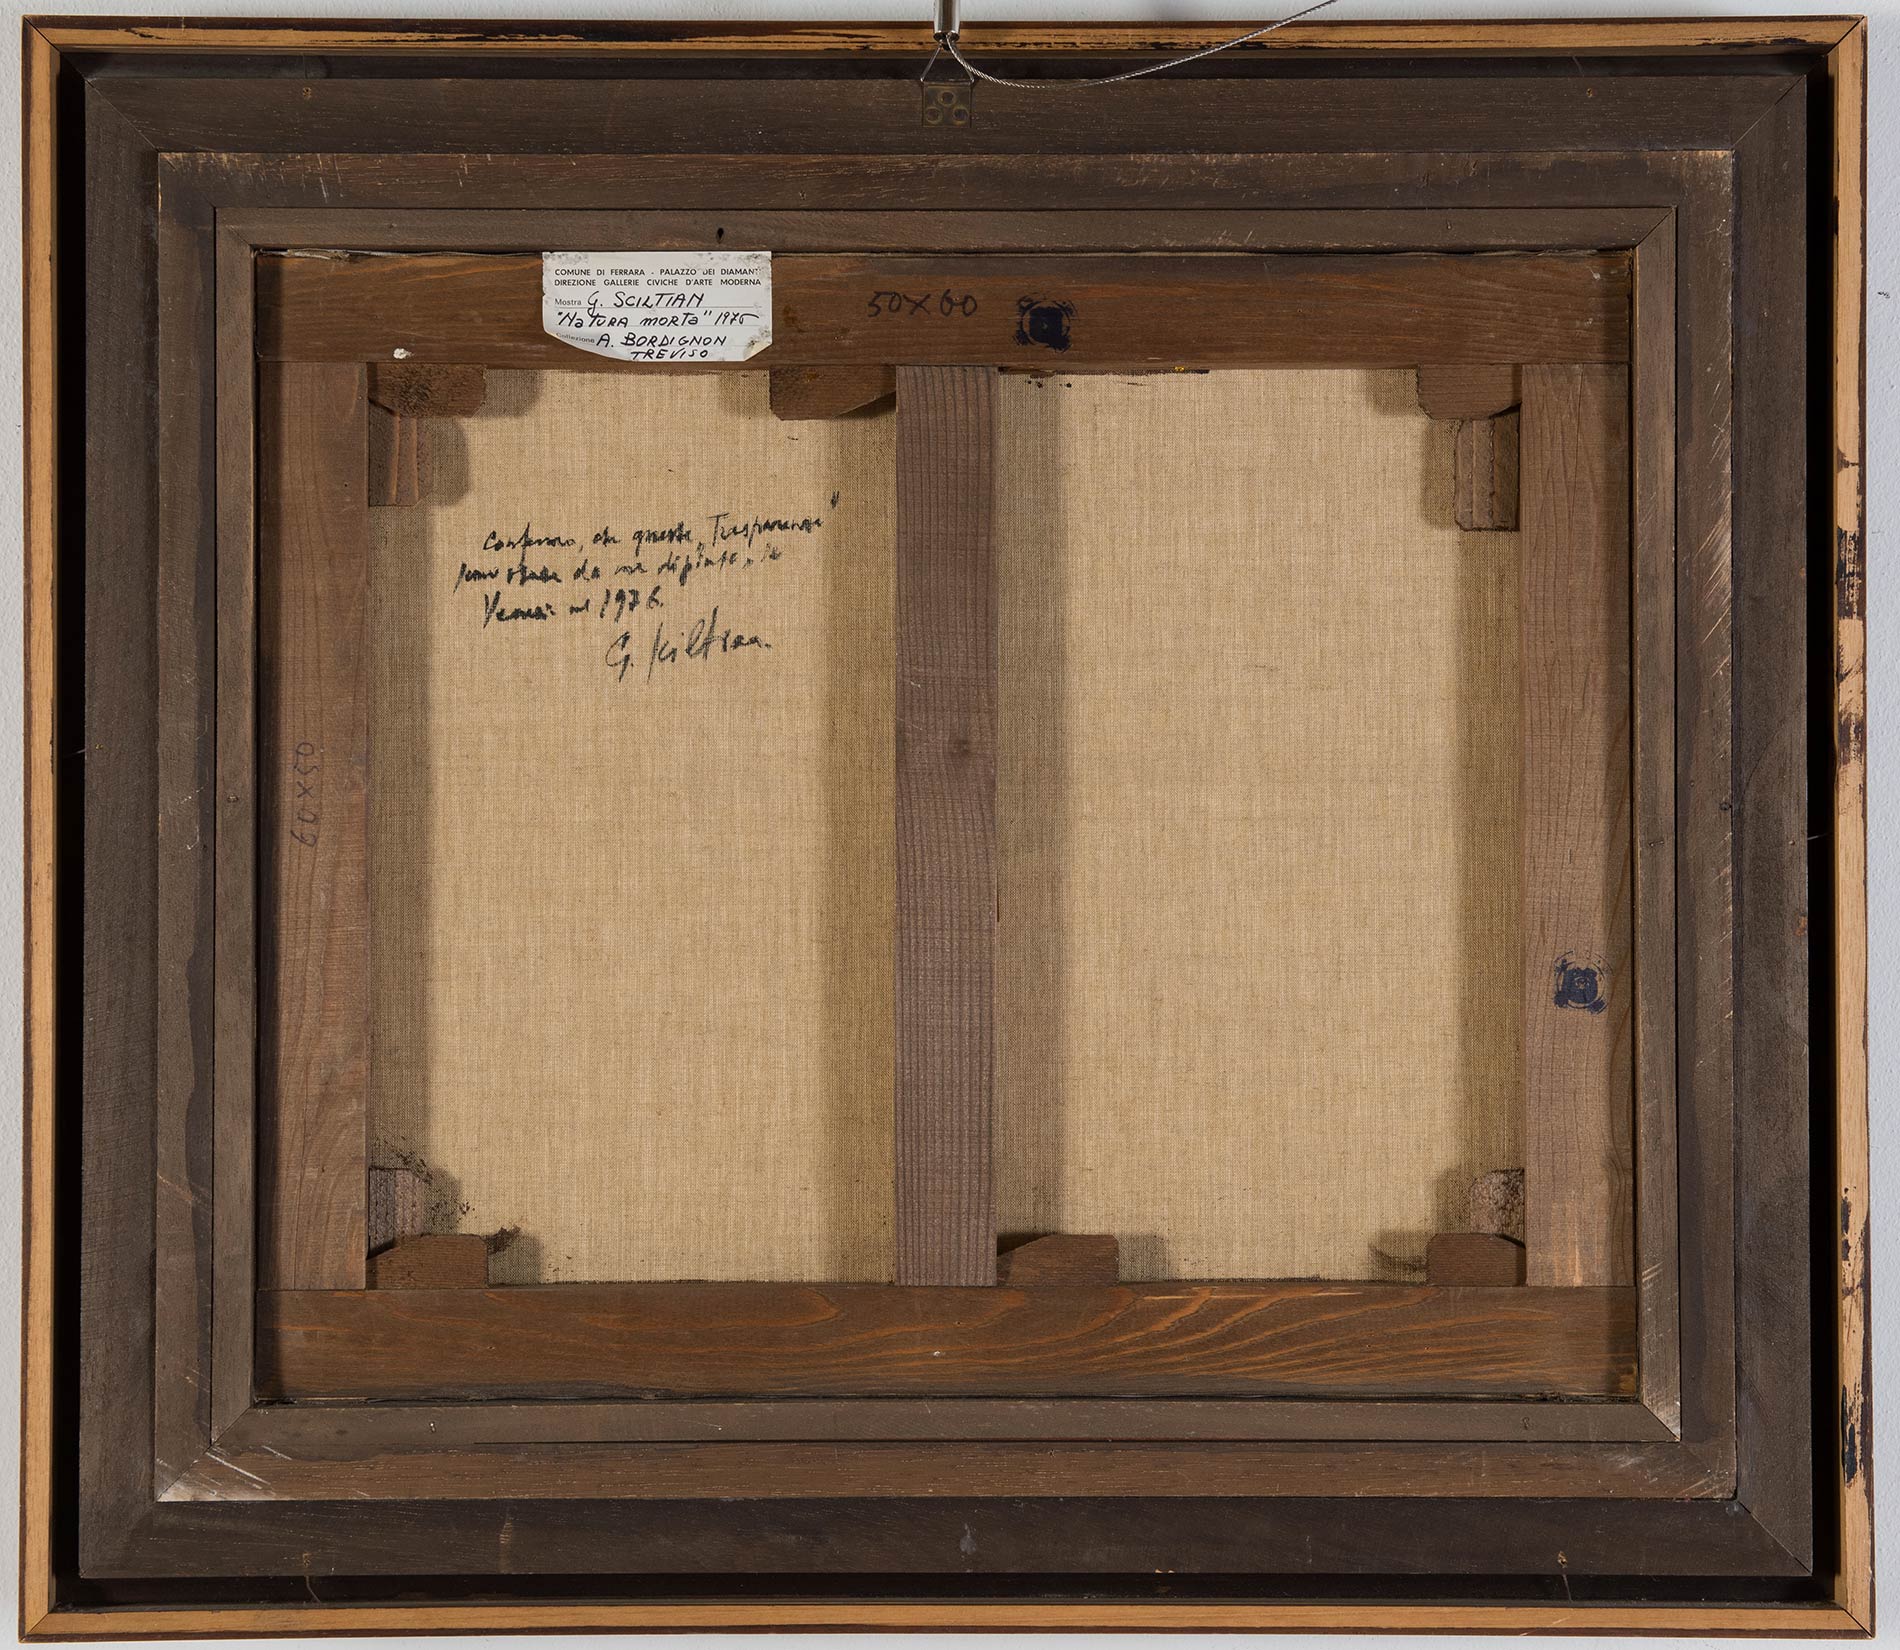 COMUNE DI FERRARA - PALAZZO DEI DIAMANTI
DIREZIONE GALLERIE CIVICHE D'ARTE MODERNA
Mostra G. SCILTIAN
"NaTURA MORTa" 1975
Collezione A. BORDIGNON
TREVISO
50X60
Confermo, che queste „Trasparenze"
sono state da me dipinte, a
Venezia nel 1976.
G. Sciltian.
60X50